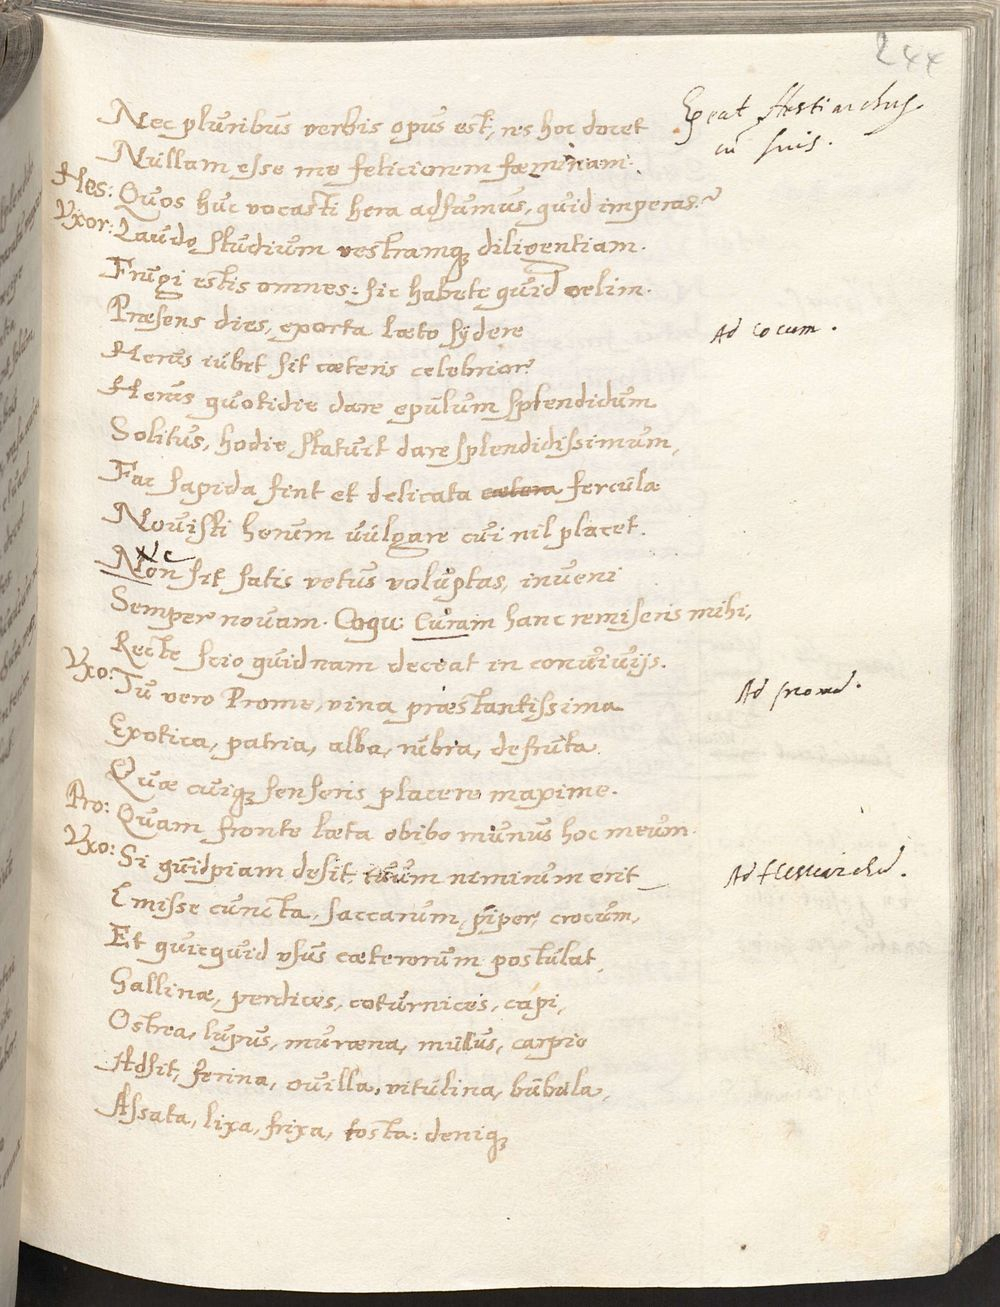 244
Nec pluribus verbis opus est, res hoc docet
Exeat Hestiarchus
cū suis.
Nullam esse me feliciorem fæminam.
Hes: Quos huc vocasti hera adsumus, quid imperas?
Uxor: Laudo studium vestramq; diligentiam.
Frugi estis omnes: sic habete quid velim.
Præsens dies, exorta læto sydere
Ad cocum.
Herus iubet sit cæteris celebrior
Herus quotidie dare epulum splendidum
Solitus, hodie statuit dare splendidissimum,
Fac sapida sint et delicata cætera fercula
Novisti herum vulgare cui nil placet.
Non Ne sit satis vetus voluptas, inveni
Semper novam. Coqu: Curam hanc remiseris mihi,
Recte scio quidnam deceat in convivijs.
Uxo: Tu vero Prome, vina præstantissima
Ad promū.
Exotica, patria, alba, rubra, defruta
Quæ cuiq; senseris placere maxime.
Pro: Quam fronte læta obibo munus hoc meum
Uxo: Si quidpiam desit, tuum neminum erit
Ad Hestiarchū.
Emisse cuncta, saccarum, piper, crocum,
Et quicquid usus cæterorum postulat,
Gallinæ, perdices, coturnices, capi,
Ostrea, lupus, muræna, mullus, carpio
Adsit, ferina, ovilla, vitulina, bubula,
Assata, lixa, frixa, tosta: deniq;